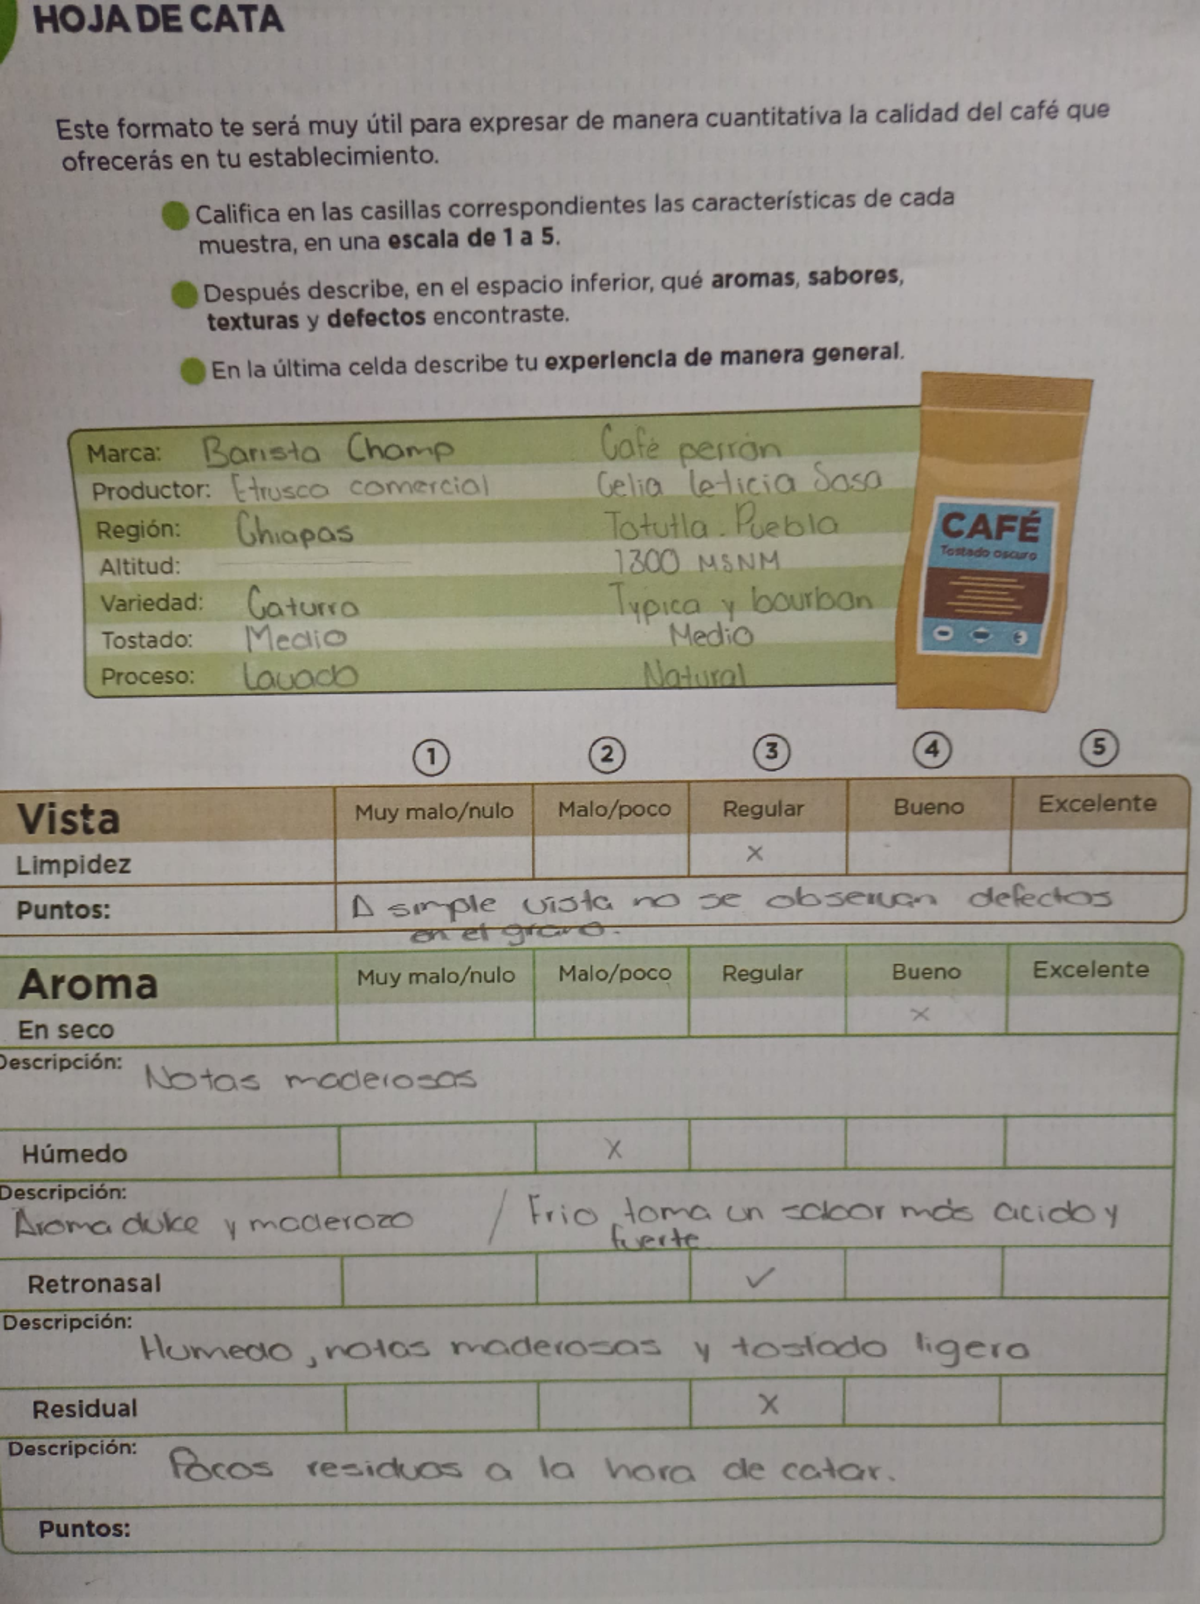 HOJA DE CATA
Este formato te será muy útil para expresar de manera cuantitativa la calidad del café que
ofrecerás en tu establecimiento.
Califica en las casillas correspondientes las características de cada
muestra, en una escala de 1 a 5.
Después describe, en el espacio inferior, qué aromas, sabores,
texturas y defectos encontraste.
En la última celda describe tu experiencia de manera general.
Marca: Barista Champ Café perrón
Productor: Etrusca comercial Celia leticia Sosa
Región: Chiapas Totutla. Puebla
Altitud: 1300 MSNM
Variedad: Caturra Typica y bourbon
Tostado: Medio Medio
Proceso: Lavado Natural
CAFÉ
Tostado oscuro
1 2 3 4 5
Vista Muy malo/nulo Malo/poco Regular Bueno Excelente
Limpidez X
Puntos: A simple vista no se observan defectos
en el grano.
Aroma Muy malo/nulo Malo/poco Regular Bueno Excelente
En seco X
Descripción: Notas maderosas
Húmedo X
Descripción:
Aroma dulce y maderozo / Frio toma un sabor más acido y
fuerte
Retronasal ✓
Descripción:
Humedo, notas maderosas y tostado ligero
Residual X
Descripción: Pocos residuos a la hora de catar.
Puntos: